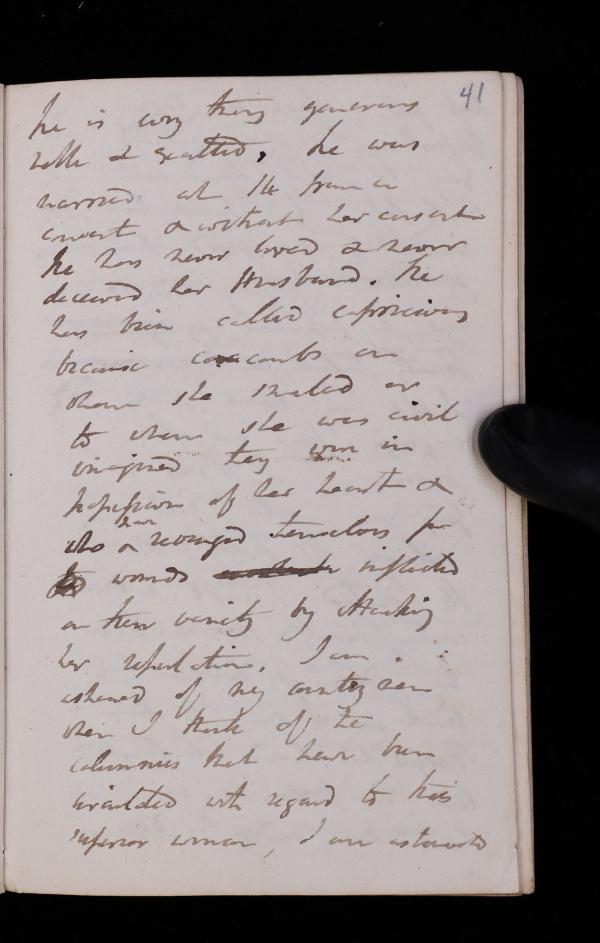 41
he is every thing generous
noble & exalted, he was
married at 16 from a
convent & without her consent
he has never loved & never
deceived her Husband. he
has been called capricious
because coxcombs on
whom she smiled or
to whom she was civil
imagined they were in
possession of her heart &
who have revenged themselves for
wounds inflicted
on their vanity by attacking
her reputation. I am
ashamed of my countrymen
when I think of the
calumnies that have been
circulated with regard to this
superior woman, I am astounded